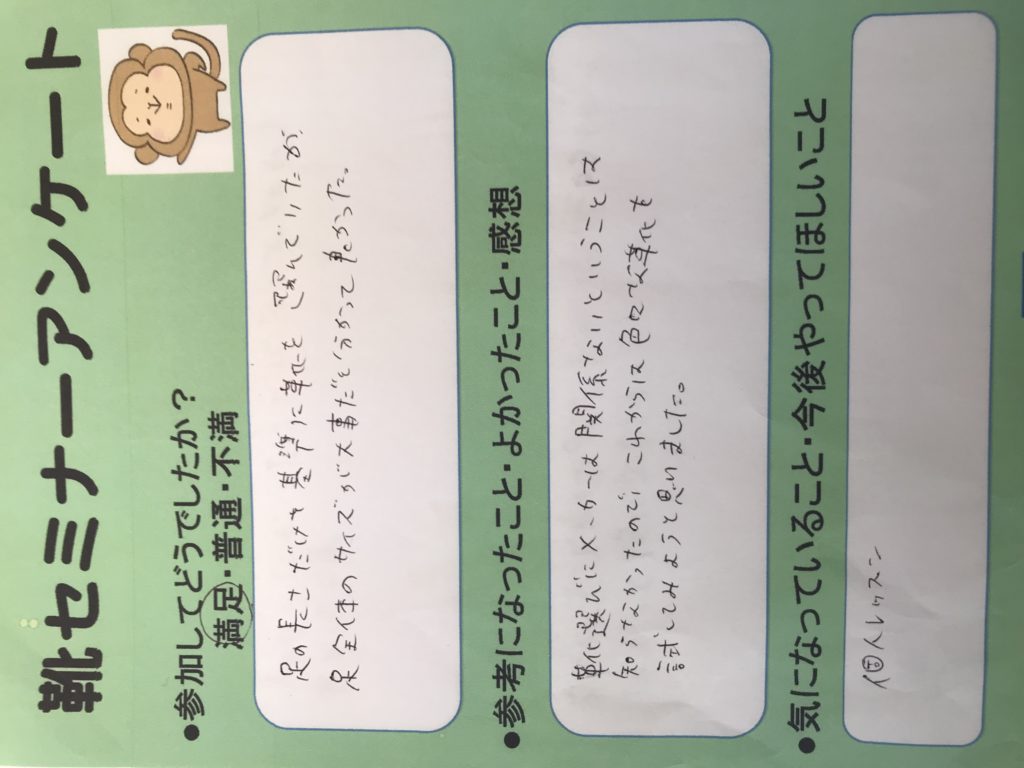 靴セミナーアンケート
●参加してどうでしたか？
満足・普通・不満
足の長さだけを基準に靴を選んでいたが、
足全体のサイズが大事だと分かって良かった。
●参考になったこと・よかったこと・感想
靴選びにメーカーは関係ないということは
知らなかったので、これからは色々な靴を
試してみようと思いました。
●気になっていること・今後やってほしいこと
個人レッスン